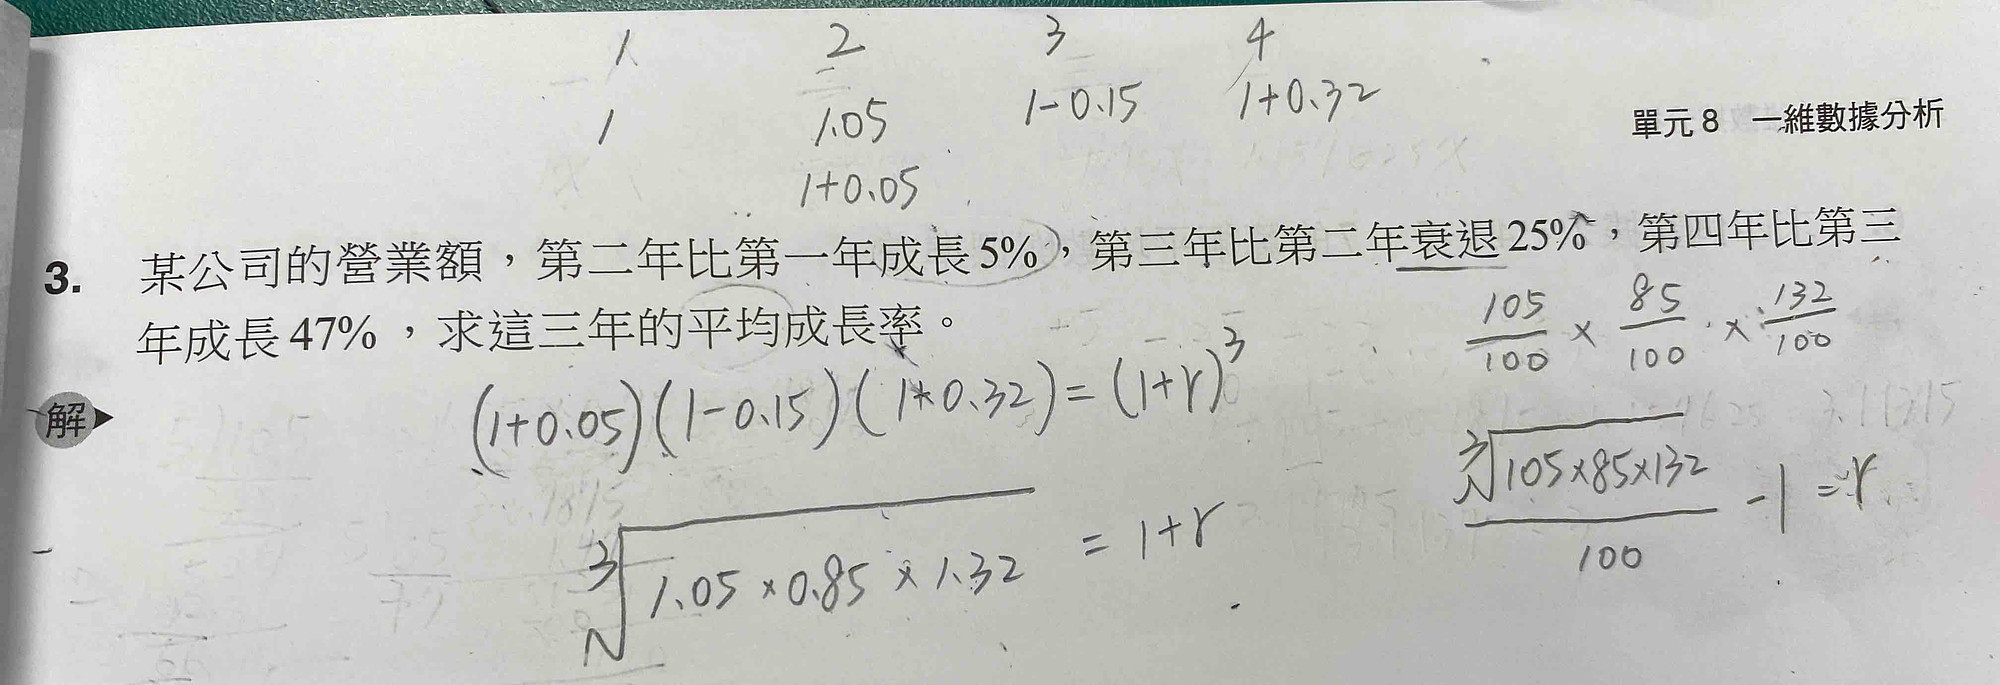 1 2 3 4
1 1.05 1-0.15 1+0.32
1+0.05
單元 8 一維數據分析
3. 某公司的營業額，第二年比第一年成長 5%，第三年比第二年衰退 25%，第四年比第三
年成長 47%，求這三年的平均成長率。
105/100 × 85/100 × 132/100
解
(1+0.05)(1-0.15)(1+0.32)=(1+r)³
∛105×85×132/100 -1=r
∛1.05×0.85×1.32 = 1+r